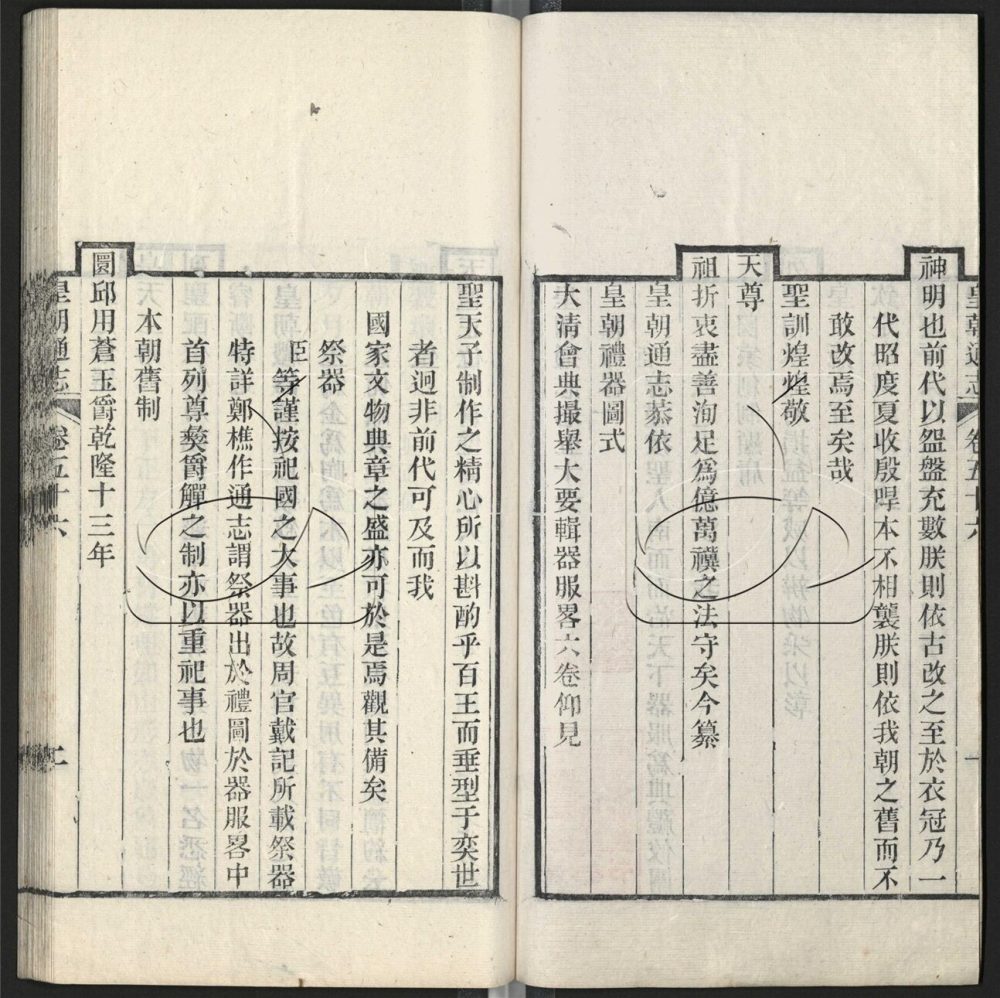 皇朝通志 卷五十六 一
神明也前代以盌盤充數朕則依古改之至於衣冠乃一
代昭度夏收殷冔本不相襲朕則依我朝之舊而不
敢改焉至矣哉
聖訓煌煌敬
天尊
祖折衷盡善洵足爲億萬禩之法守矣今纂
皇朝通志恭依
皇朝禮器圖式
大淸會典撮舉大要輯器服畧六卷仰見
聖天子制作之精心所以斟酌乎百王而垂型于奕世
者迥非前代可及而我
國家文物典章之盛亦可於是焉觀其備矣
祭器
臣等謹按祀國之大事也故周官戴記所載祭器
特詳鄭樵作通志謂祭器出於禮圖於器服畧中
首列尊彝爵觶之制亦以重祀事也
本朝舊制
圜邱用蒼玉爵乾隆十三年
皇朝通志 卷五十六 二